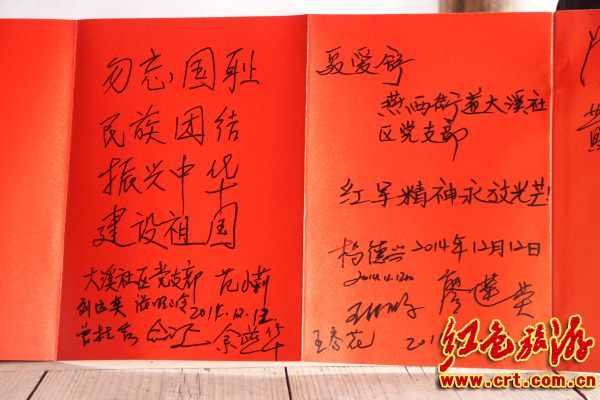 勿忘国耻
民族团结
振兴中华
建设祖国
大溪社区党支部 范小莉
2014.12.12
夏爱舒
燕西街道大溪社
区党支部
红军精神永放光芒!
杨德兴 2014年12月12日
2014.12.12
廖莲英
王香花 201
黄
红色旅游
www.crt.com.cn